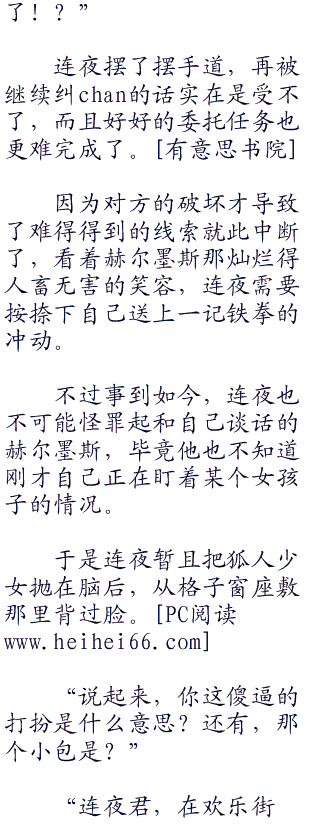 了！？”
连夜摆了摆手道，再被
继续纠chan的话实在是受不
了，而且好好的委托任务也
更难完成了。[有意思书院]
因为对方的破坏才导致
了难得得到的线索就此中断
了，看着赫尔墨斯那灿烂得
人畜无害的笑容，连夜需要
按捺下自己送上一记铁拳的
冲动。
不过事到如今，连夜也
不可能怪罪起和自己谈话的
赫尔墨斯，毕竟他也不知道
刚才自己正在盯着某个女孩
子的情况。
于是连夜暂且把狐人少
女抛在脑后，从格子窗座敷
那里背过脸。[PC阅读
www.heihei66.com]
“说起来，你这傻逼的
打扮是什么意思？还有，那
个小包是？”
“连夜君，在欢乐街